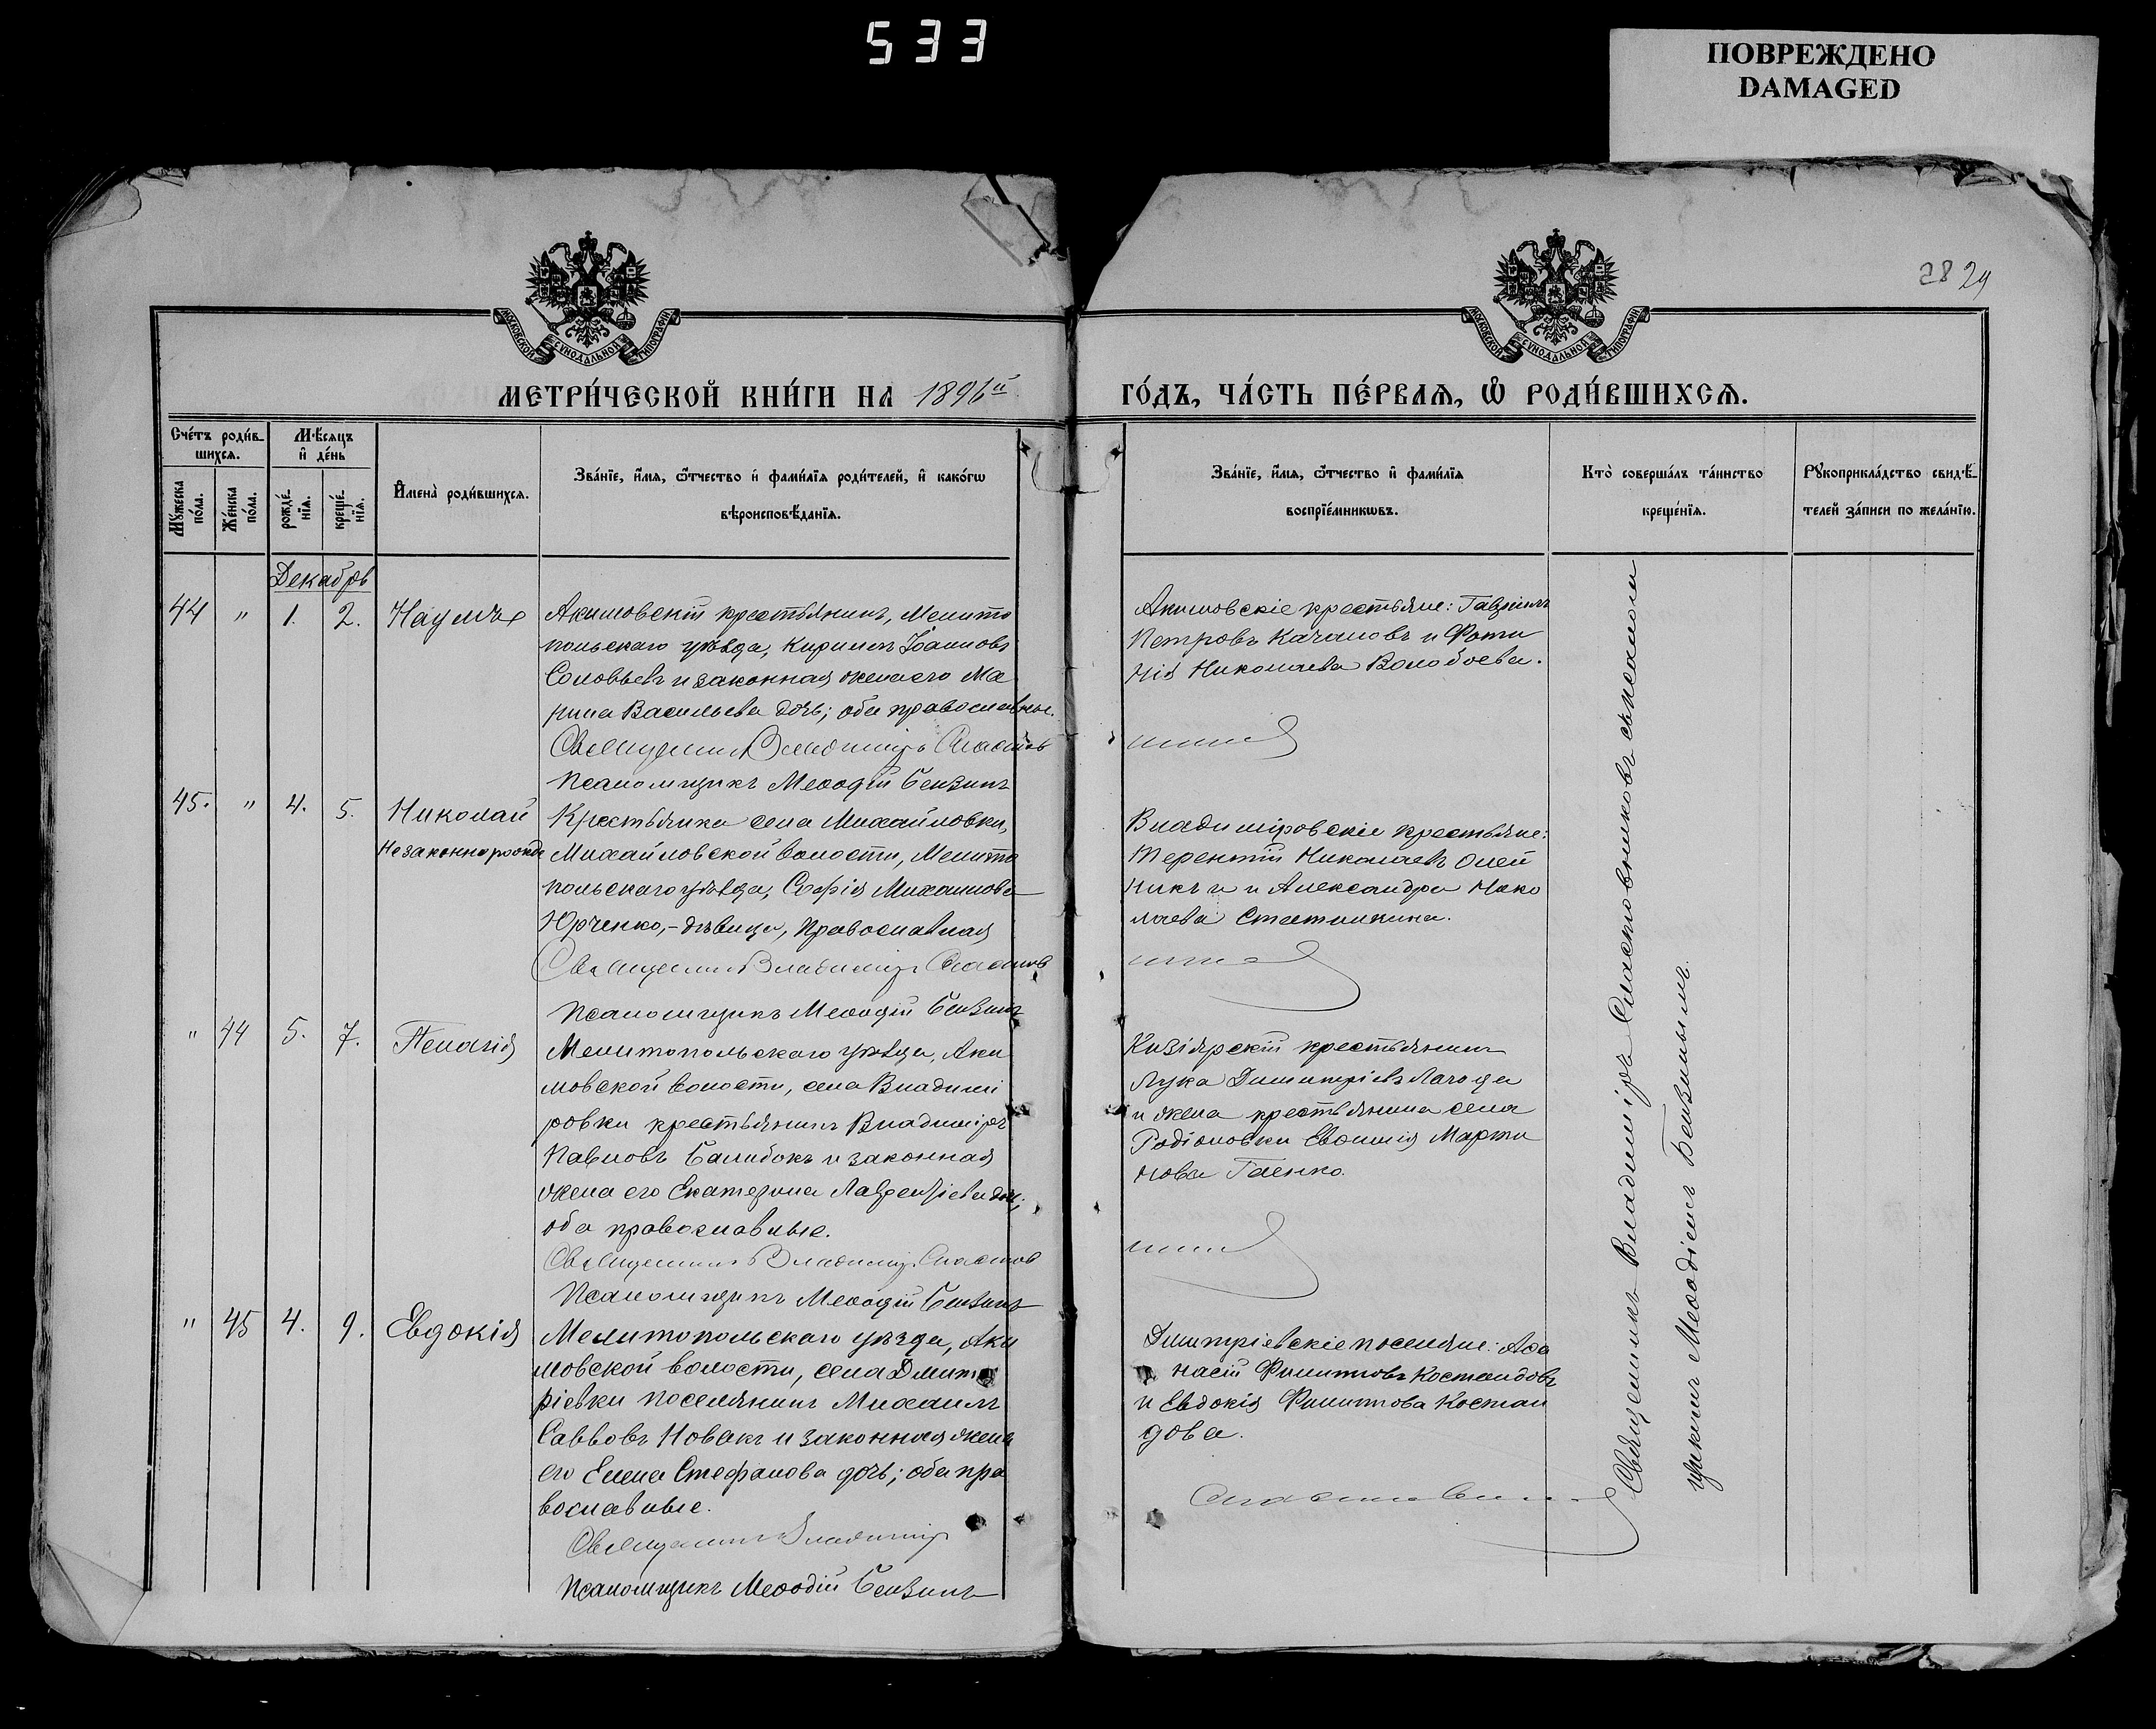 533
ПОВРЕЖДЕНО
DAMAGED
28 29
МОСКОВСКОЙ СѴНОДАЛЬНОЙ ТИПОГРАФІИ
МОСКОВСКОЙ СѴНОДАЛЬНОЙ ТИПОГРАФІИ
МЕТРИ́ЧЕСКОЙ КНИ́ГИ НА 1896й
ГО́ДЪ, ЧА́СТЬ ПЕ́РВАѦ, Ѽ РОДИ́ВШИХСѦ.
Сче́тъ роди́в-
шихсѧ.
Мꙋ́жеска по́ла.
Же́нска по́ла.
Мѣ́сѧцъ
и҆ де́нь
рожде́нїѧ.
креще́нїѧ.
И҆мена̀ роди́вшихсѧ.
Зва́нїе, и҆́мѧ, ѻ҆́тчество и҆ фами́лїѧ роди́телей, и҆ како́гѡ
вѣроисповѣ́данїѧ.
Зва́нїе, и҆́мѧ, ѻ҆́тчество и҆ фами́лїѧ
воспрїе́мникѡвъ.
Кто̀ соверша́лъ та́инство
креще́нїѧ.
Рꙋкоприкла́дство свидѣ́-
телей за́писи по жела́нїю.
Декабрь
44 " 1. 2. Наумъ
Акимовскій крестьянинъ, Мелито
польскаго уѣзда, Кириллъ Іоанновъ
Соловьевъ и законная жена его Ма
рина Васильева дочь; оба православные.
Священникъ Владиміръ Сластіовъ
Псаломщикъ Меѳодій Бензинъ
Акимовскіе крестьяне: Гавріилъ
Петровъ Качановъ и Фоти
нія Николаева Волобоева.
45. " 4. 5. Николай
Незаконнорожд
Крестьянка села Михайловки,
Михайловской волости, Мелито
польскаго уѣзда, Софія Михаилова
Юрченко,- дѣвица, православная
Священникъ Владиміръ
Псаломщикъ Меѳодій Бензинъ
Владиміровскіе крестьяне:
Терентій Николаевъ Олей
никъ и и Александра Нико
лаева
" 44 5. 7. Пелагія
Мелитопольскаго уѣзда, Аки
мовской волости, села Владими
ровки крестьянинъ Владиміръ
Павловъ Балибокъ и законная
жена его Екатерина Лаврентіева доч;
оба православные.
Священникъ Владиміръ
Псаломщикъ Меѳодій Бензинъ
Кизіярскій крестьянинъ
Лука Димитріевъ Лагода
и жена крестьянина села
Родіоновки Евфимія Марти
нова Гаенко.
" 45 4. 9. Евдокія
Мелитопольскаго уѣзда, Аки
мовской волости, села Димит
ріевки поселянинъ Михаилъ
Савовъ Новакъ и законная жена
его Елена Стефанова дочь; оба пра
вославные.
Священникъ Владиміръ
Псаломщикъ Меѳодій Бензинъ
Димитріевскіе поселяне: Аѳа
насій Филипповъ Костандовъ
и Евдокія Филиппова Костан
дова.
Священникъ Владиміръ съ псалом
щикомъ Меѳодіемъ Бензинымъ.